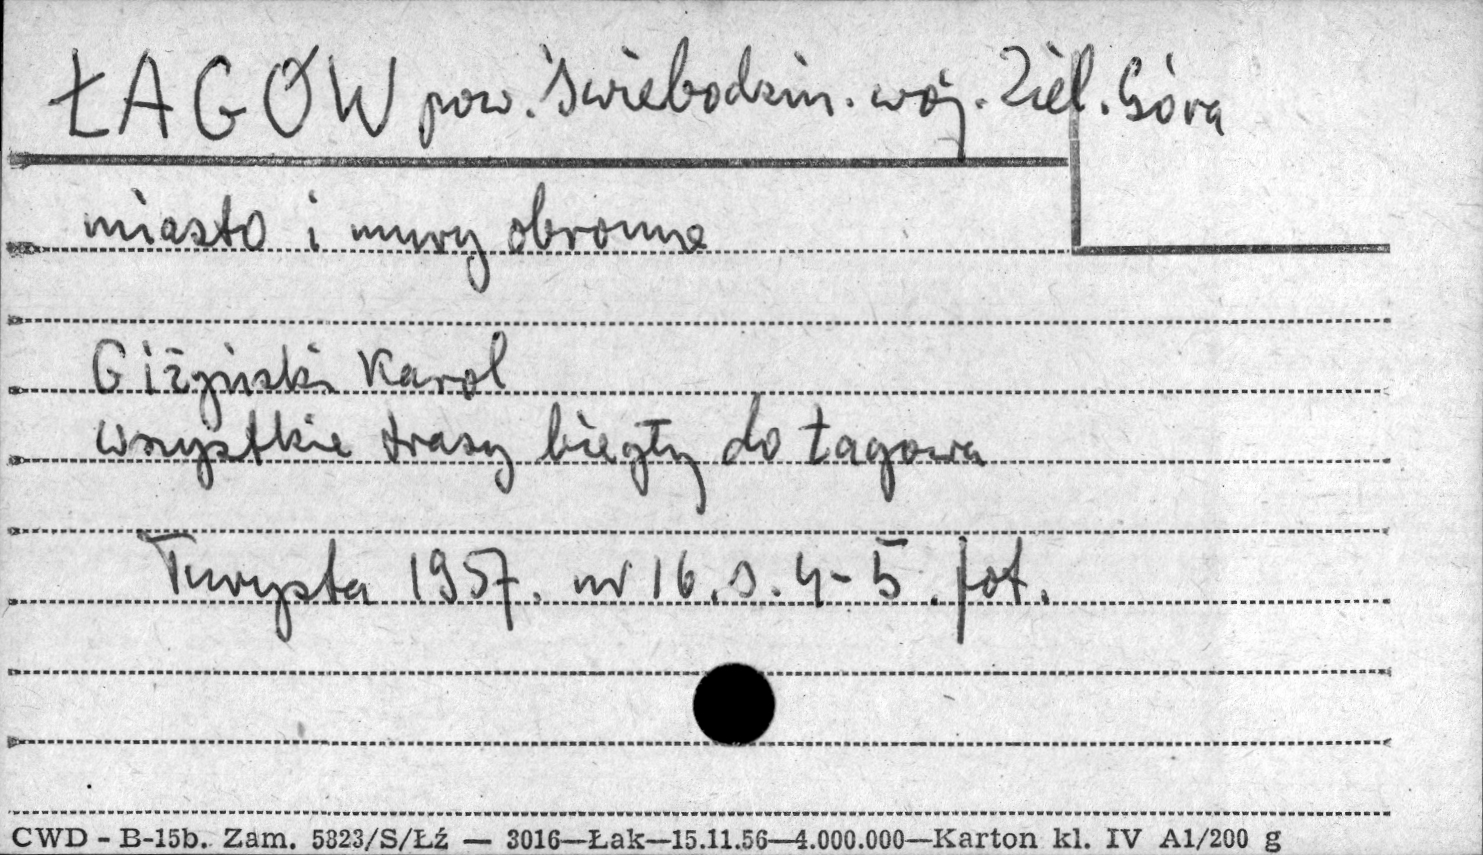 ŁAGÓW pow. Świebodzin. woj. Ziel. Góra
miasto i mury obronne
Giżyński Karol
Wszystkie trasy biegły do Łagowa
Turysta 1957. nr 16. s. 4-5. fot.
CWD - B-15b. Zam. 5823/S/Łź — 3016—Łak—15.11.56—4.000.000—Karton kl. IV A1/200 g